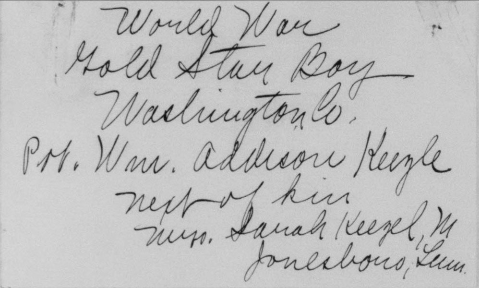 World War
Gold Star Boy
Washington Co.
Pvt. Wm. Addison Keezle
next of kin
Mrs. Sarah Keezel, M
Jonesboro, Tenn.